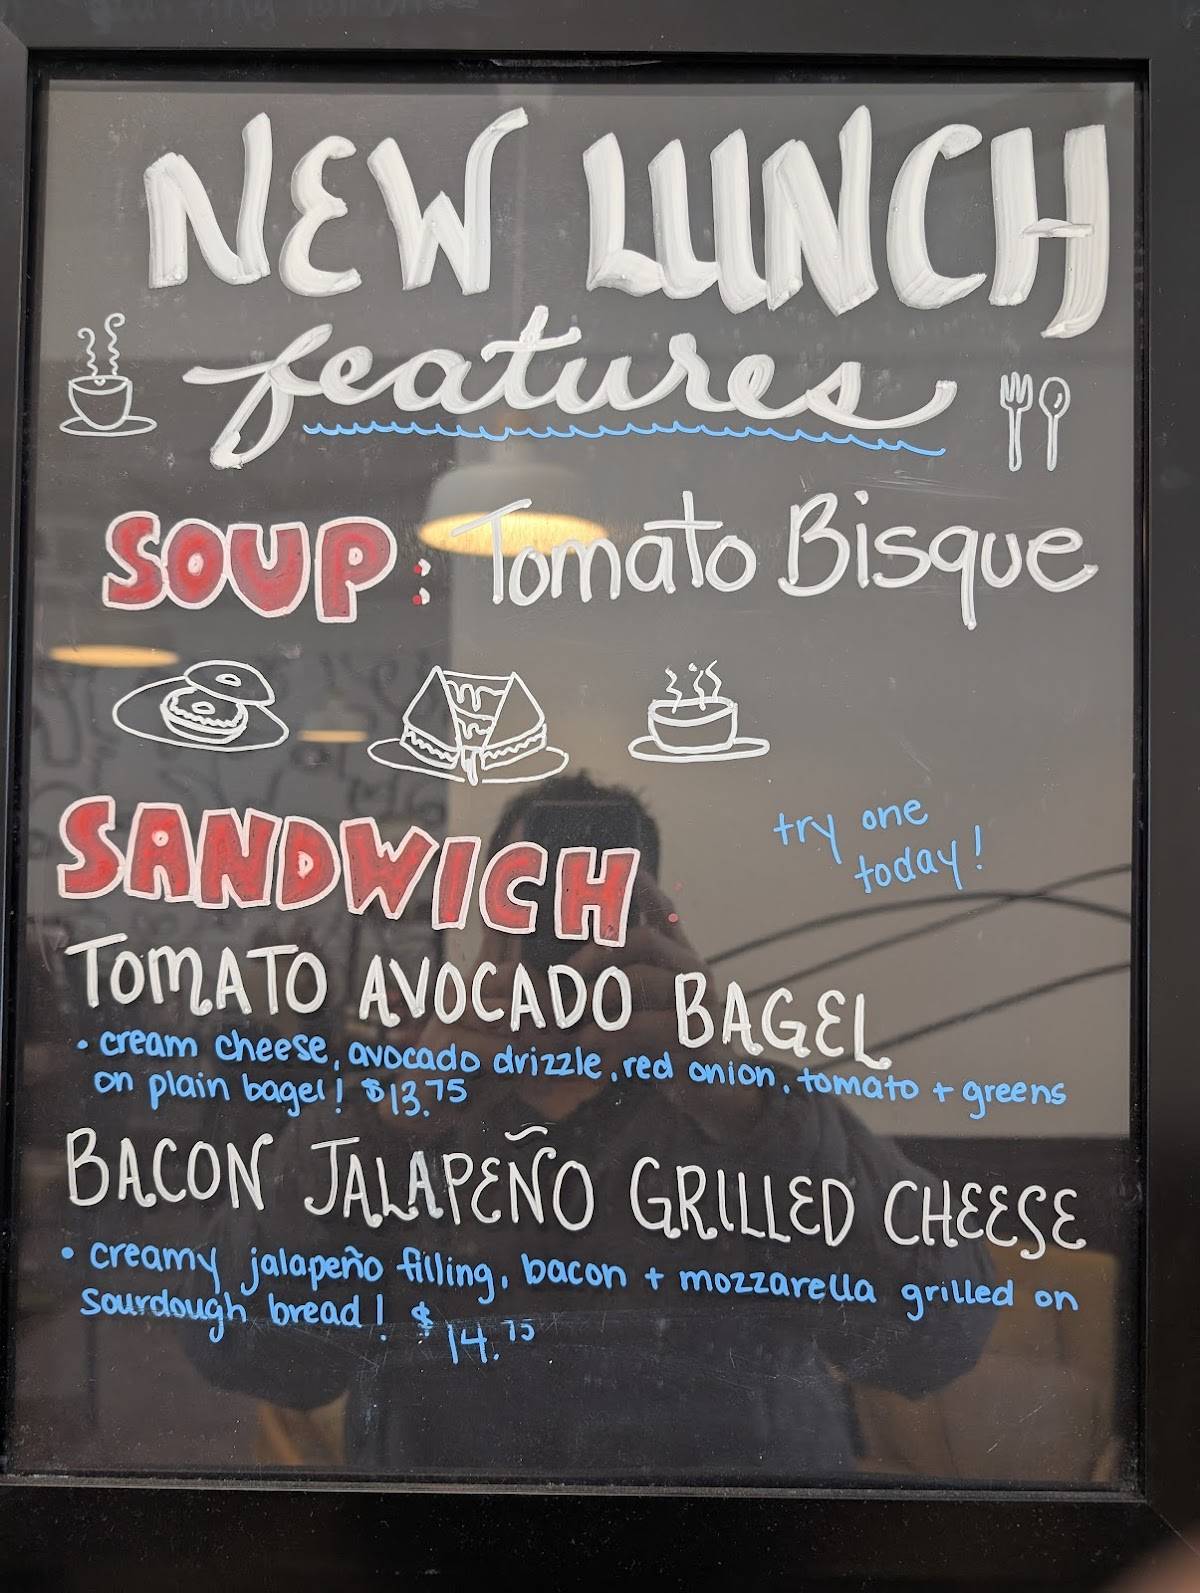 NEW LUNCH
features
SOUP: Tomato Bisque
try one
today!
SANDWICH:
TOMATO AVOCADO BAGEL
• cream cheese, avocado drizzle, red onion, tomato + greens
on plain bagel! $13.75
BACON JALAPEÑO GRILLED CHEESE
• creamy jalapeño filling, bacon + mozzarella grilled on
sourdough bread! $14.75